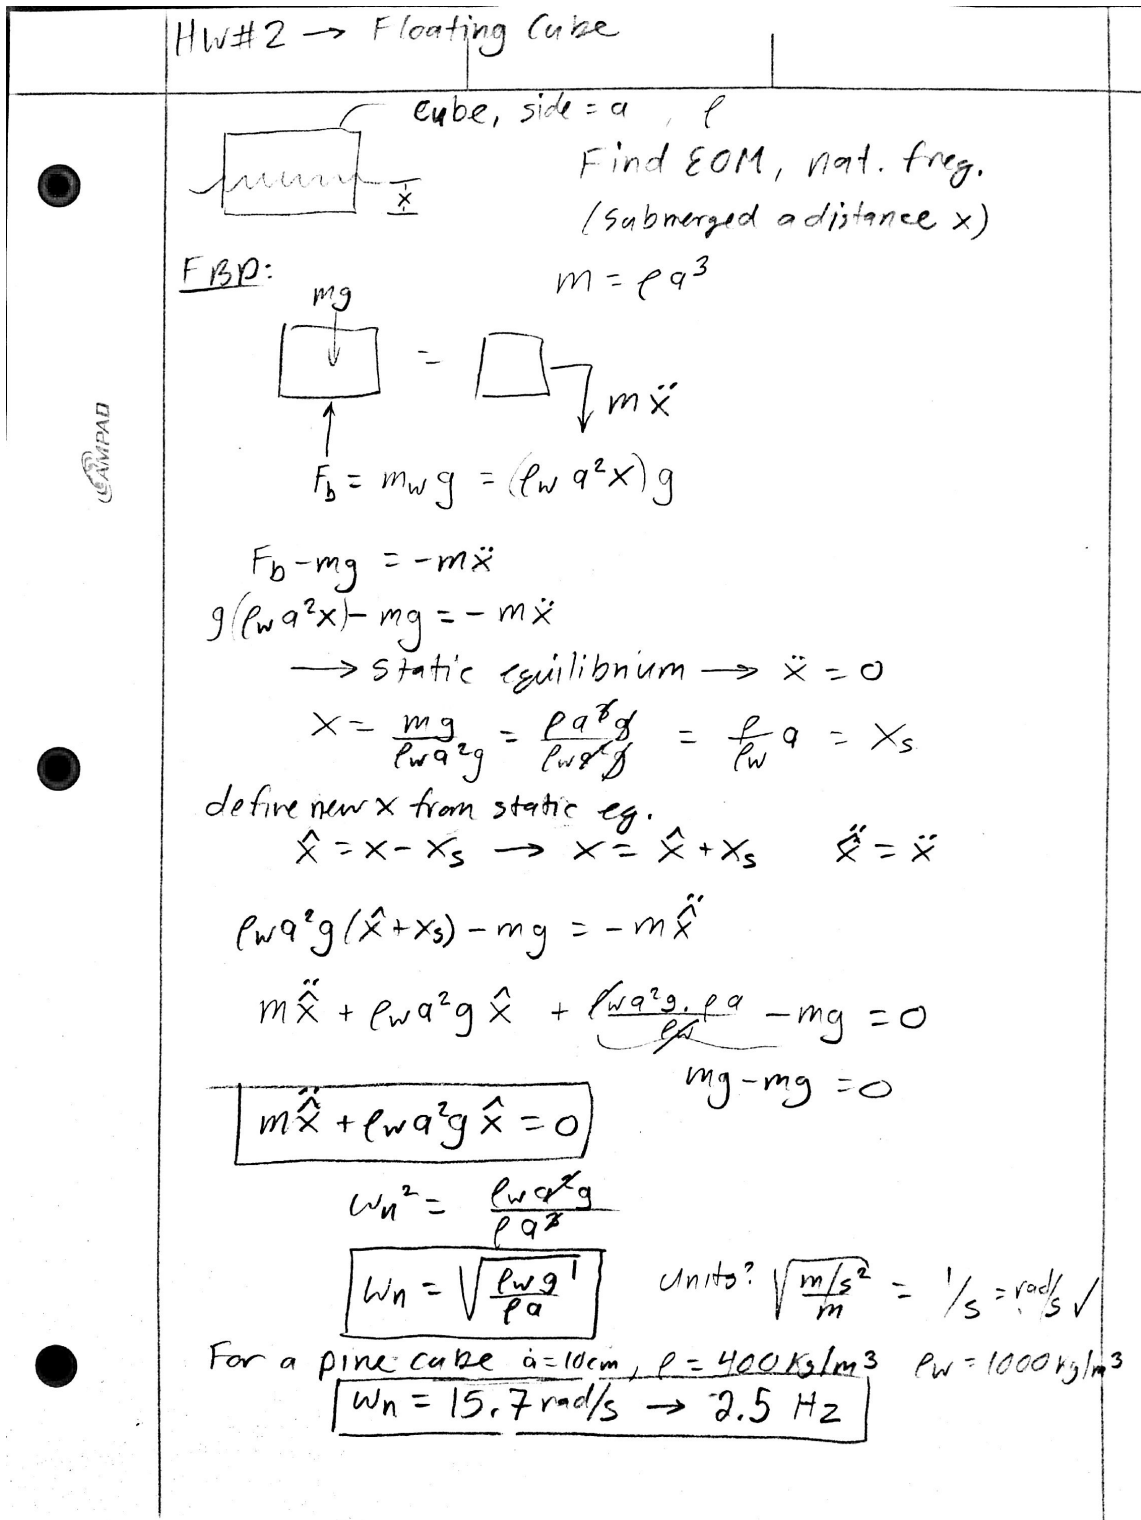 HW#2 → Floating Cube
cube, side = a, ρ
Find EOM, nat. freq.
x
(submerged a distance x)
FBD:
m = ρa³
mg
=
mẍ
F_b = m_w g = (ρ_w a²x)g
F_b - mg = -mẍ
g(ρ_w a²x) - mg = -mẍ
→ static equilibrium → ẍ = 0
x = mg/(ρ_w a²g) = ρa³g/(ρ_w a²g) = (ρ/ρ_w) a = x_s
define new x from static eq.
x̂ = x - x_s → x = x̂ + x_s    x̂̈ = ẍ
ρ_w a²g(x̂ + x_s) - mg = -m x̂̈
m x̂̈ + ρ_w a²g x̂ + (ρ_w a²g · ρa)/ρ_w - mg = 0
mg - mg = 0
m x̂̈ + ρ_w a²g x̂ = 0
ω_n² = ρ_w a²g/(ρa³)
ω_n = √(ρ_w g/(ρa))    Units? √((m/s²)/m) = 1/s = rad/s ✓
For a pine cube a=10cm, ρ = 400 kg/m³ ρ_w = 1000 kg/m³
ω_n = 15.7 rad/s → 2.5 Hz
AMPAD